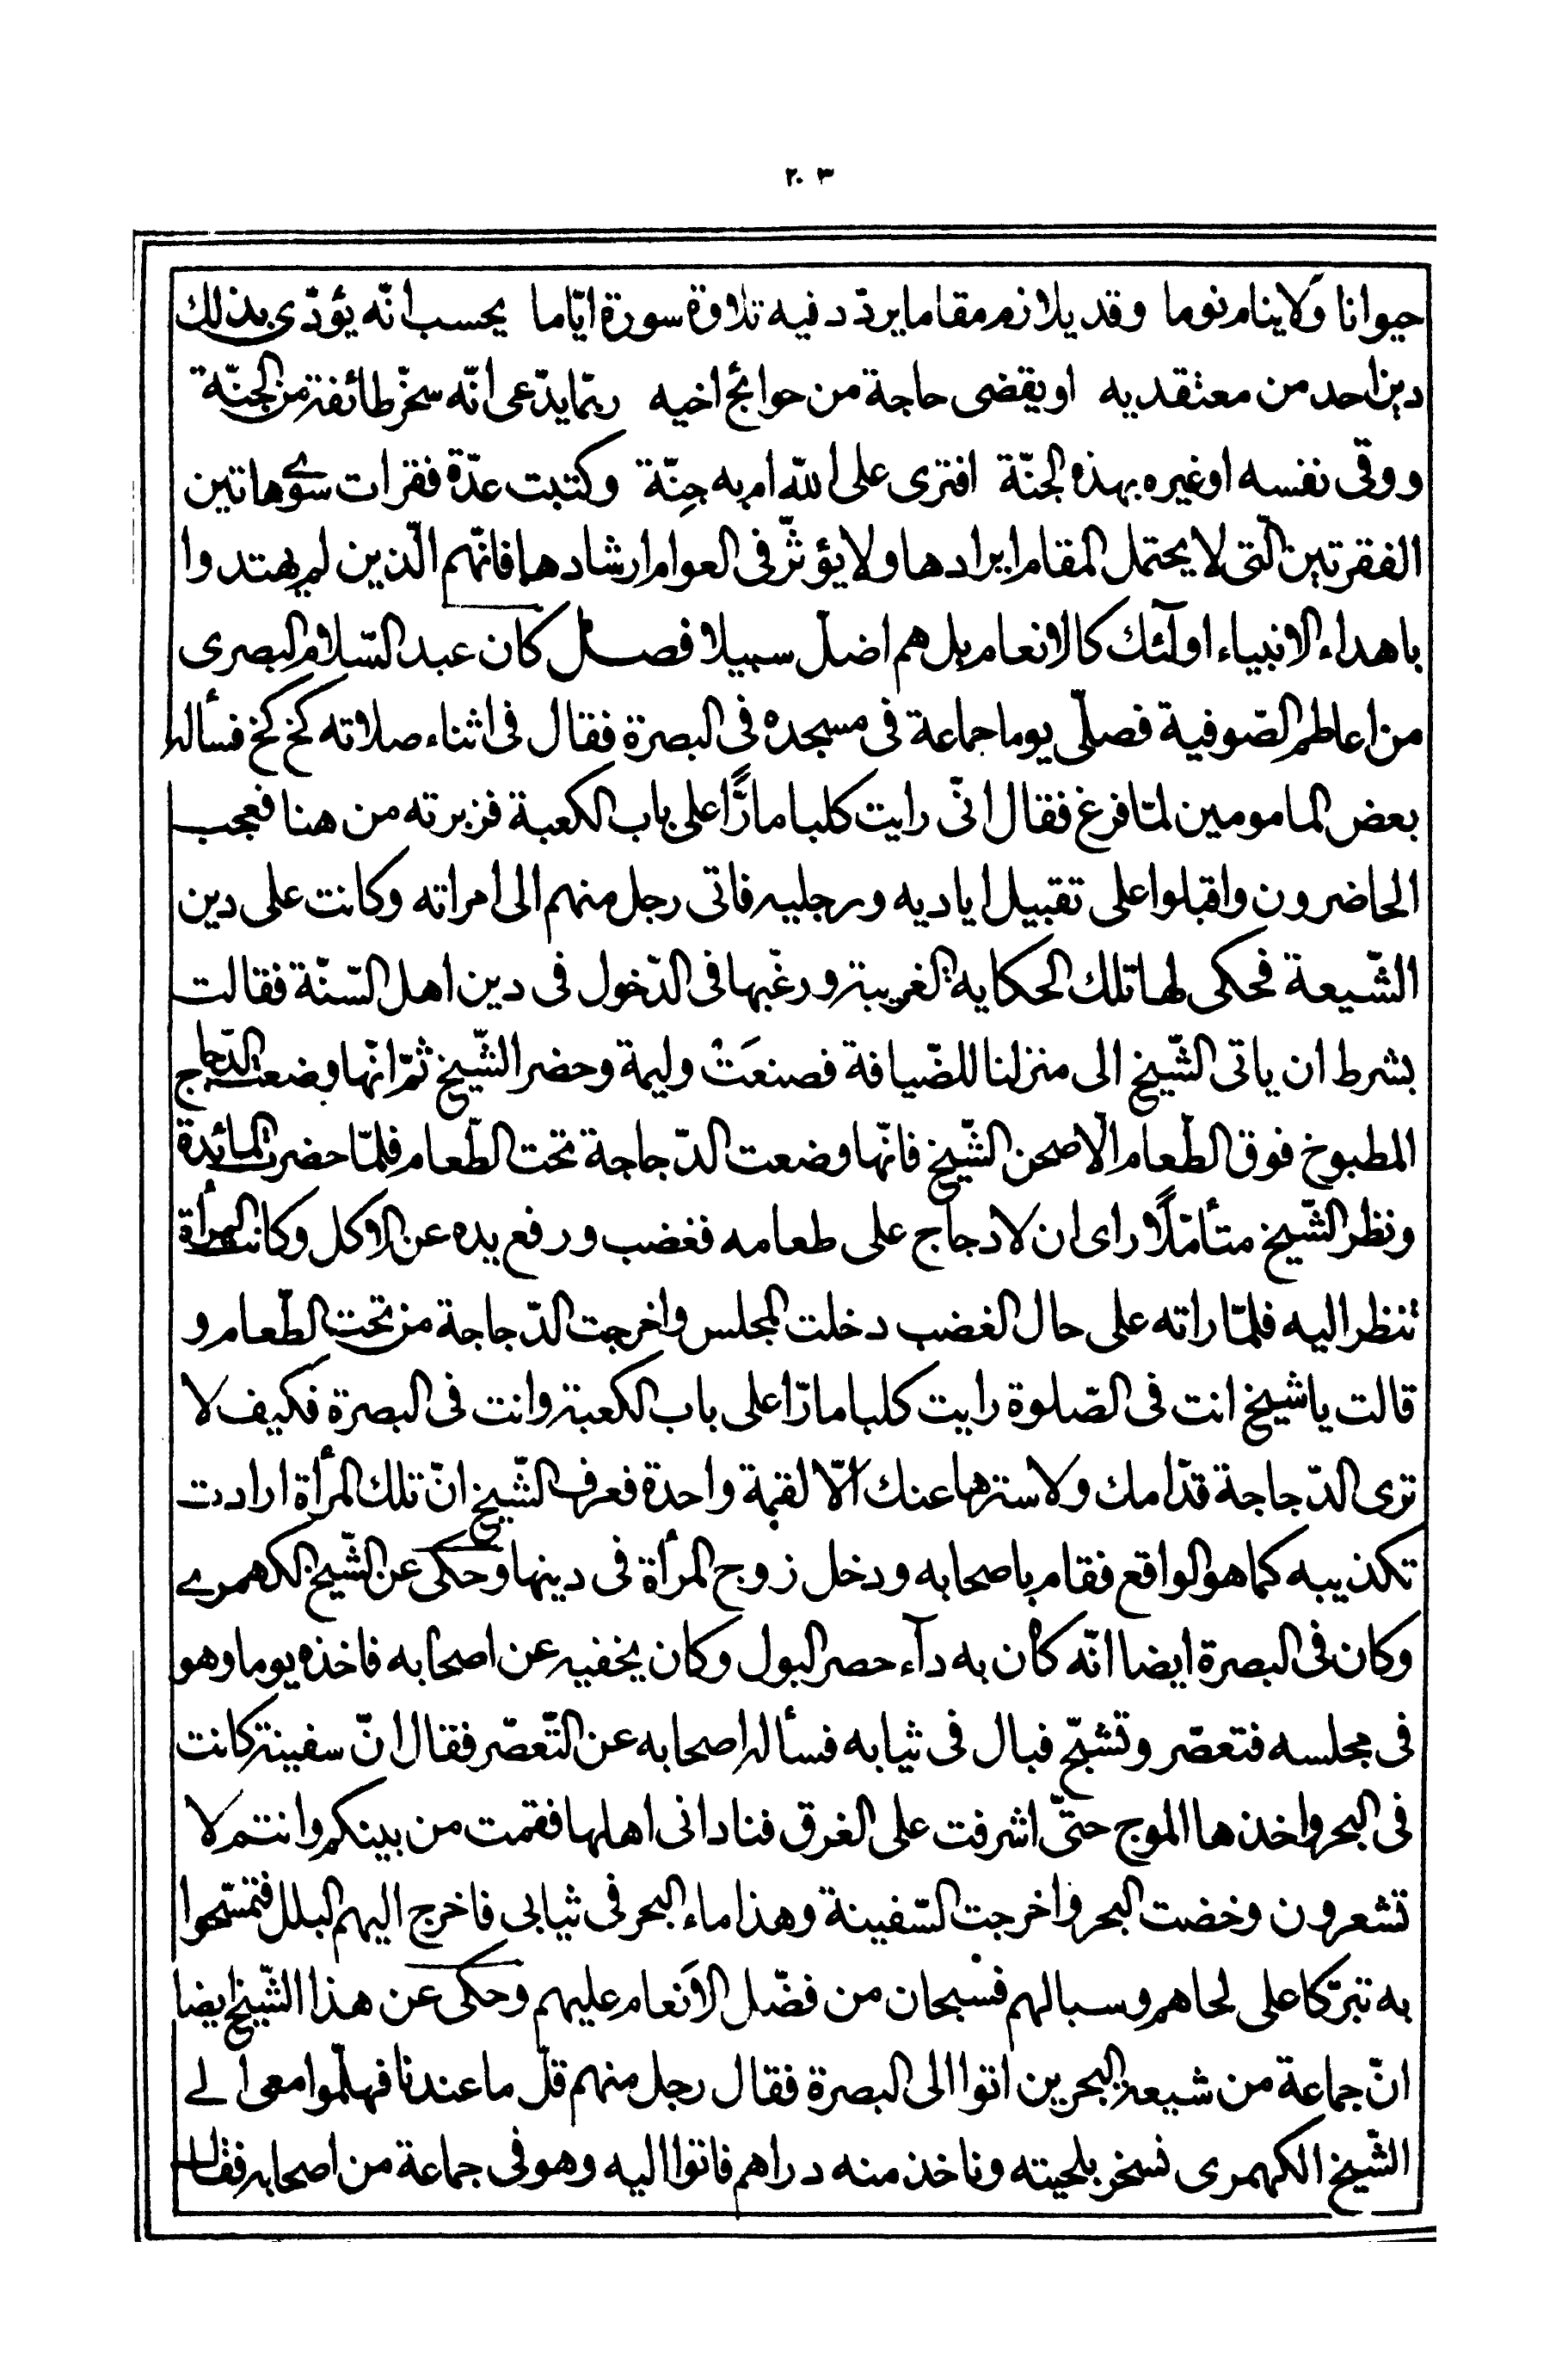 ٢٠٣
حيوانا ولا ينام نوما وقد يلازم مقاما يردّد فيه تلاوة سورة ايّاما يحسب انّه يؤدّى بذلك
دين احد من معتقديه او يقضى حاجة من حوائج اخيه ربّما يدّعى انّه سخّر طائفة من الجنّة
ووقى نفسه او غيره بهذه الجنّة افترى على اللّه ام به جِنّة وكتبت عدّة فقرات سوى هاتين
الفقرتين الّتى لا يحتمل المقام ايرادها ولا يؤثّر فى العوام ارشادها فانّهم الّذين لم يهتدوا
باهداء الانبياء اولٓئك كالانعام بل هم اضلّ سبيلا فصل كان عبد السّلام البصرى
من اعاظم الصّوفية فصلّى يوما جماعة فى مسجده فى البصرة فقال فى اثناء صلاته كخ كخ فسأله
بعض المامومين لمّا فرغ فقال انّى رايت كلبا مارًّا على باب الكعبة فزبرته من هنا فعجب
الحاضرون واقبلوا على تقبيل اياديه ورجليه فاتى رجل منهم الى امراته وكانت على دين
الشّيعة فحكى لها تلك الحكاية الغريبة ورغّبها فى الدّخول فى دين اهل السّنّة فقالت
بشرط ان ياتى الشّيخ الى منزلنا للضّيافة فصنعَتْ وليمة وحضر الشّيخ ثمّ انّها وضعت الدّجاج
المطبوخ فوق الطّعام الّا صحن الشّيخ فانّها وضعت الدّجاجة تحت الطّعام فلمّا حضرت المائدة
ونظر الشّيخ متأمّلًا راى ان لا دجاج على طعامه فغضب ورفع يده عن الاكل وكانت المرأة
تنظر اليه فلمّا راته على حال الغضب دخلت المجلس واخرجت الدّجاجة من تحت الطّعام و
قالت يا شيخ انت فى الصّلوة رايت كلبا مارّا على باب الكعبة وانت فى البصرة فكيف لا
ترى الدّجاجة قدّامك ولا سترها عنك الّا لقمة واحدة فعرف الشّيخ انّ تلك المرأة ارادت
تكذيبه كما هو الواقع فقام باصحابه ودخل زوج المرأة فى دينها وحكى عن الشّيخ الكهمرى
وكان فى البصرة ايضا انّه كان به دآء حصر البول وكان يخفيه عن اصحابه فاخذه يوما وهو
فى مجلسه فتعصّر وتشبّح فبال فى ثيابه فسأله اصحابه عن التّعصّر فقال انّ سفينة كانت
فى البحر واخذها الموج حتّى اشرفت على الغرق فنادانى اهلها فقمت من بينكم وانتم لا
تشعرون وخضت البحر واخرجت السّفينة وهذا ماء البحر فى ثيابى فاخرج اليهم البلل فتمسّحوا
به تبرّكا على لحاهم وسبالهم فسبحان من فضّل الاَنعام عليهم وحكى عن هذا الشّيخ ايضا
انّ جماعة من شيعة البحرين اتوا الى البصرة فقال رجل منهم قلّ ما عندنا فهلّموا معى الى
الشّيخ الكهمرى نسخر بلحيته وناخذ منه دراهم فاتوا اليه وهو فى جماعة من اصحابه فقال